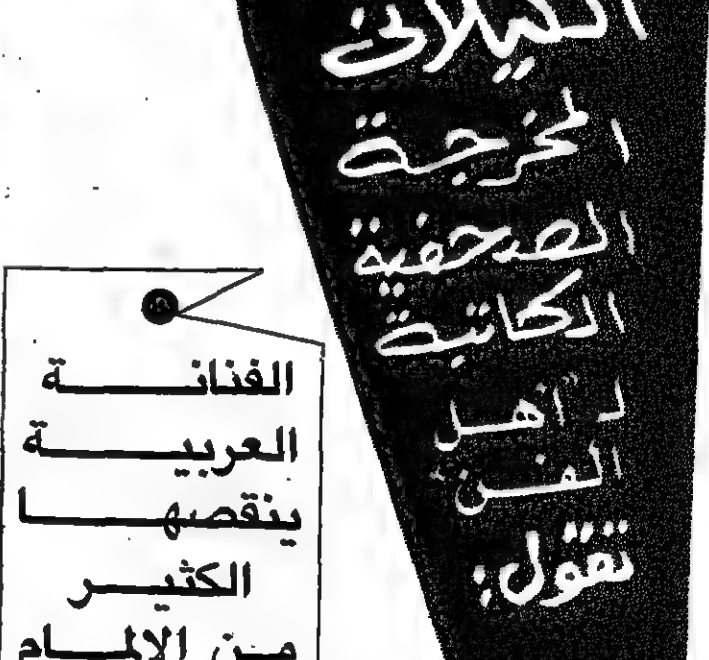 الكيلاني
المخرجة
الصحفية
الكاتبة
لـ "أهل
الفن"
تقول:
الفنانة
العربية
ينقصها
الكثير
من الالمام